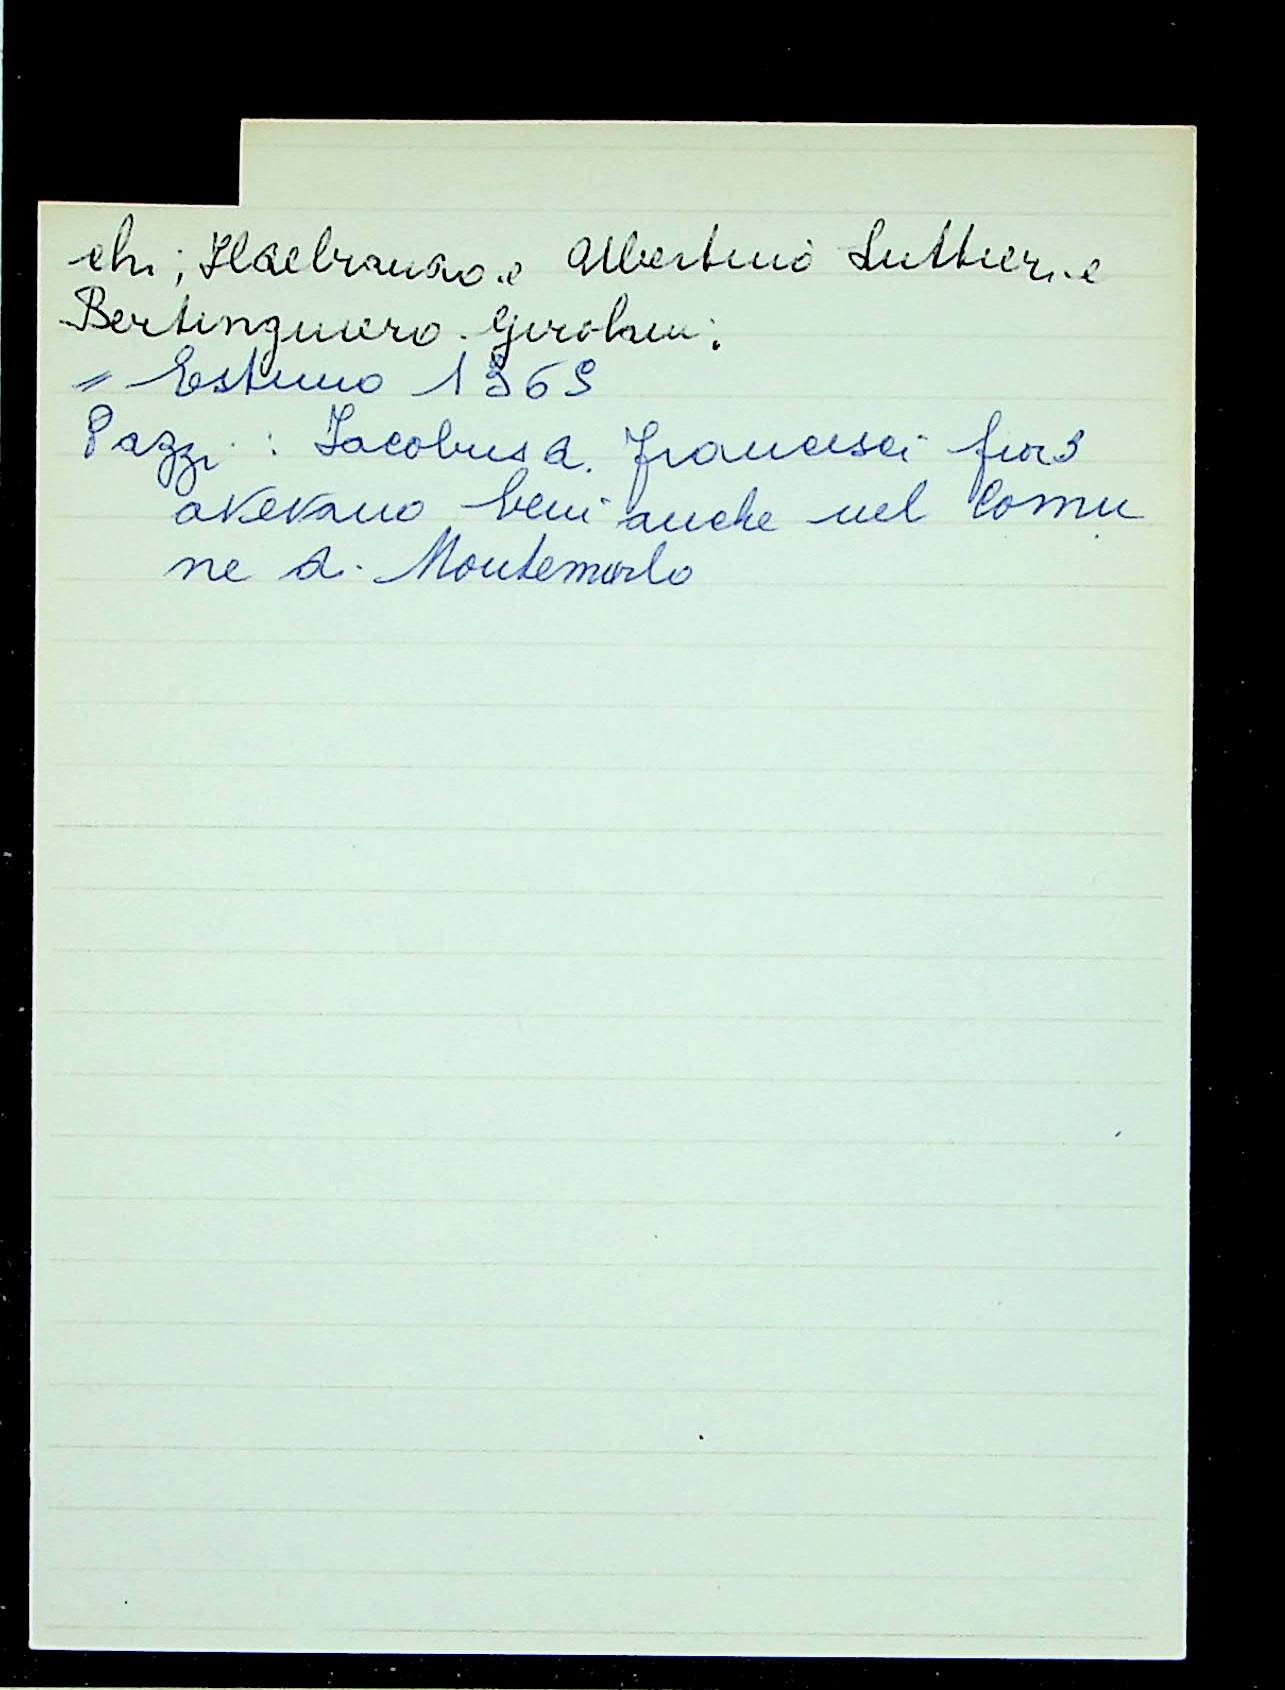 chi; Ildebrando e Albertino Luttieri e
Bertinguiero Girolami;
= Estimo 1369
Pazzi: Iacobus d. Francisci
avevano beni anche nel Comu
ne di Montemurlo